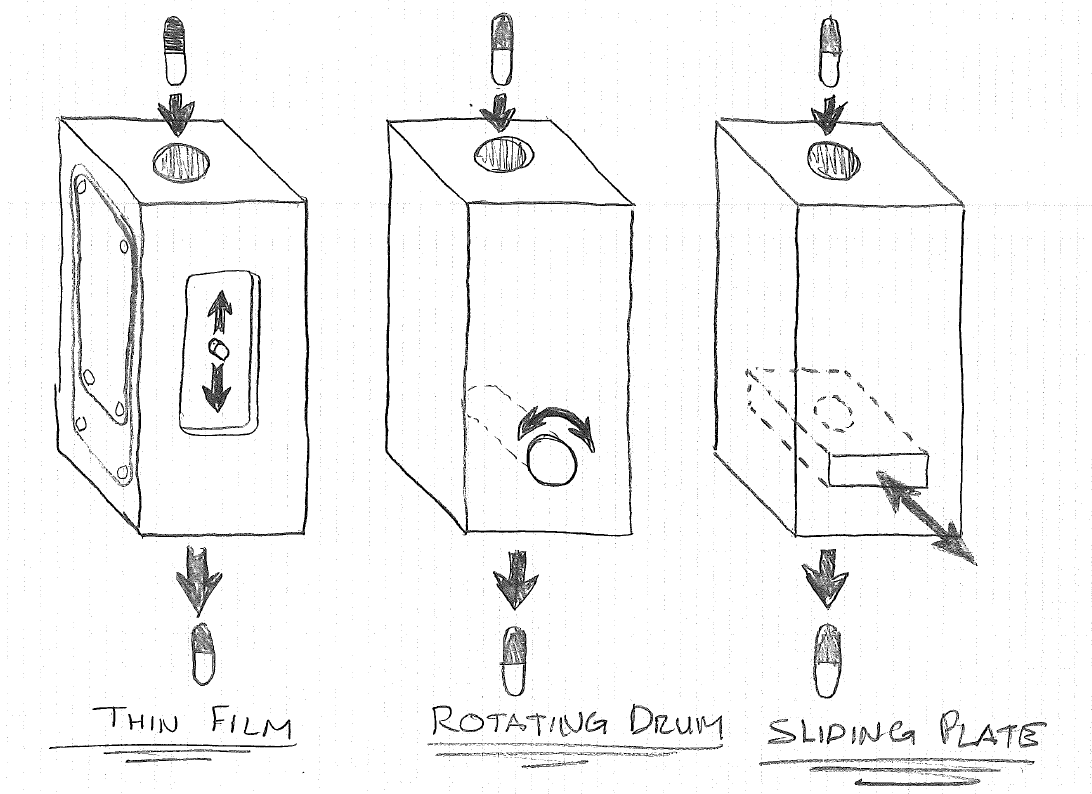 THIN FILM
ROTATING DRUM
SLIDING PLATE